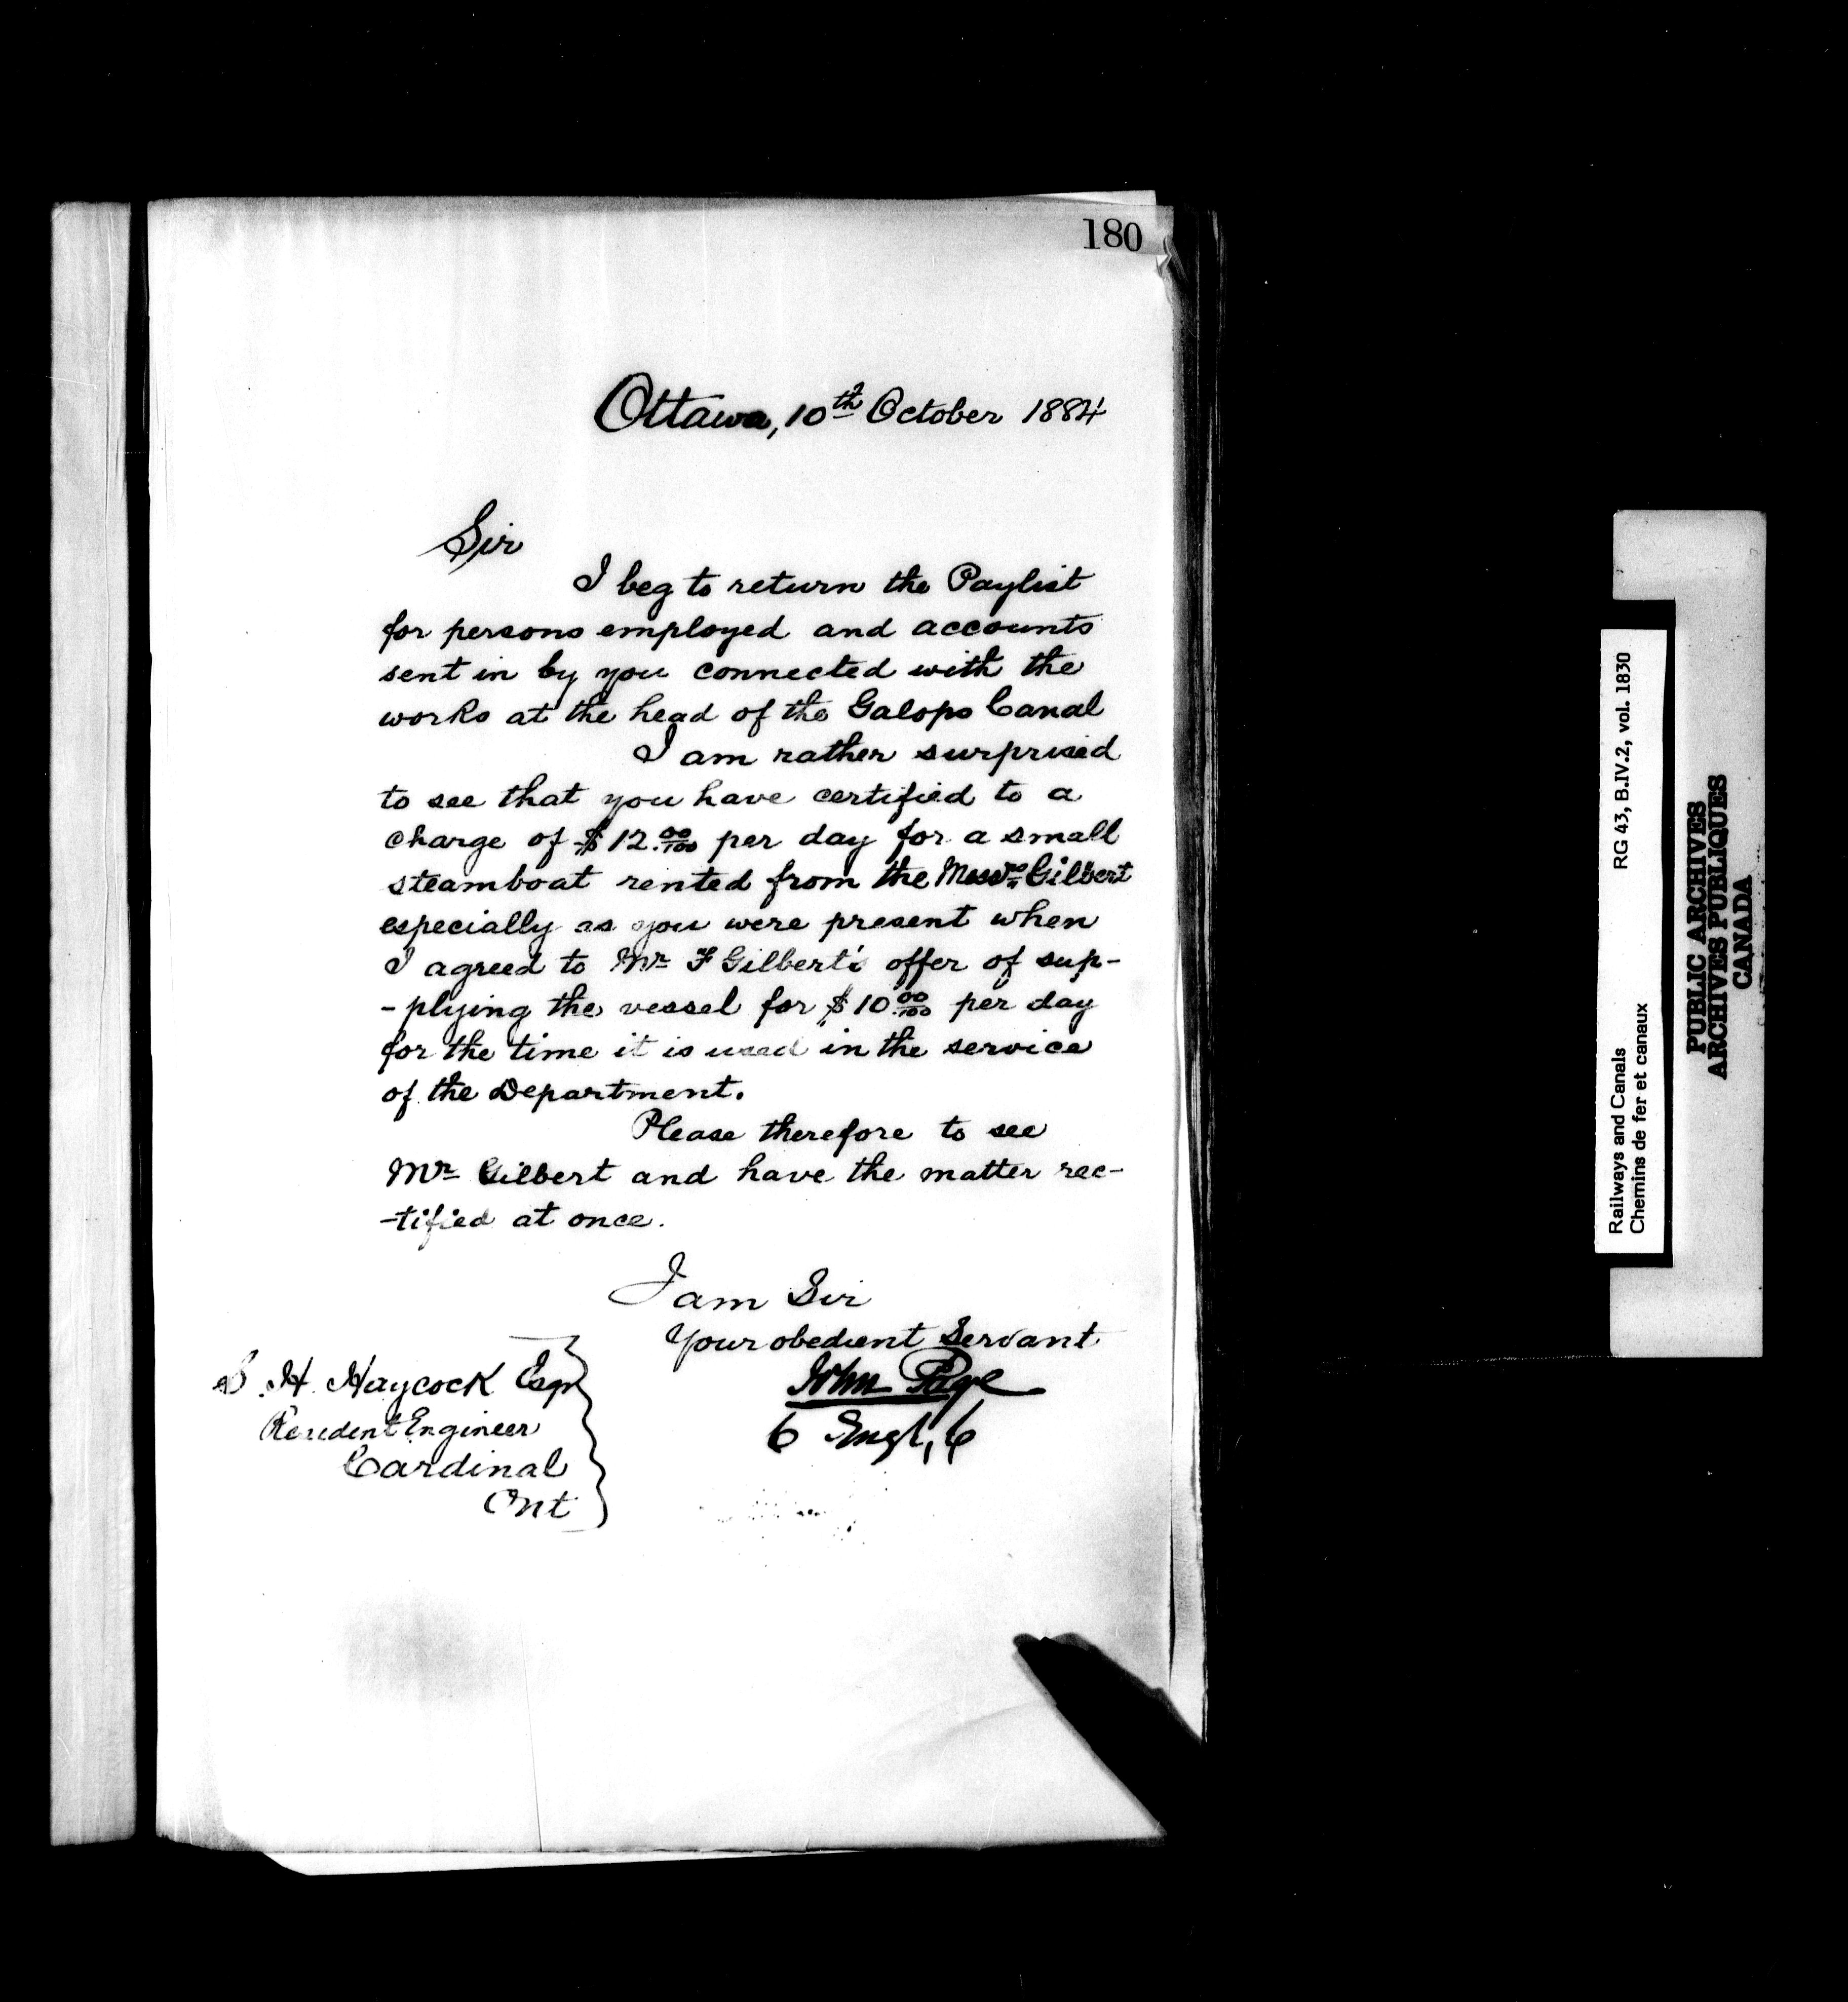 180
Ottawa, 10th October 1884
Sir
I beg to return the Paylist
for persons employed and accounts
sent in by you connected with the
works at the head of the Galops Canal
I am rather surprised
to see that you have certified to a
charge of $12.00/100 per day for a small
steamboat rented from the Messrs Gilbert
especially as you were present when
I agreed to Mr F Gilbert's offer of sup-
-plying the vessel for $10.00/100 per day
for the time it is used in the service
of the Department.
Please therefore to see
Mr Gilbert and have the matter rec-
-tified at once.
I am Sir
Your obedient Servant
John Page
C Engr, C
H. Haycock Esqr
Resident Engineer
Cardinal
Ont
Railways and Canals RG 43, B.IV.2, vol. 1830
Chemins de fer et canaux
PUBLIC ARCHIVES
ARCHIVES PUBLIQUES
CANADA